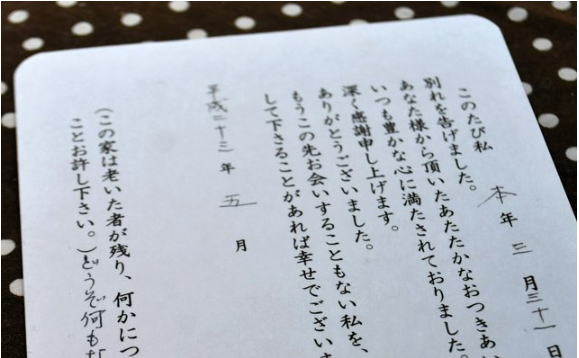 このたび私 本年 三月三十一日
別れを告げました。
あなた様から頂いたあたたかなおつきあい
いつも豊かな心に満たされておりました。
深く感謝申し上げます。
ありがとうございました。
もうこの先お会いすることもない私を、
して下さることがあれば幸せでございま
平成二十三年 五月
(この家は老いた者が残り、何かにつ
ことお許し下さい。)どうぞ何も